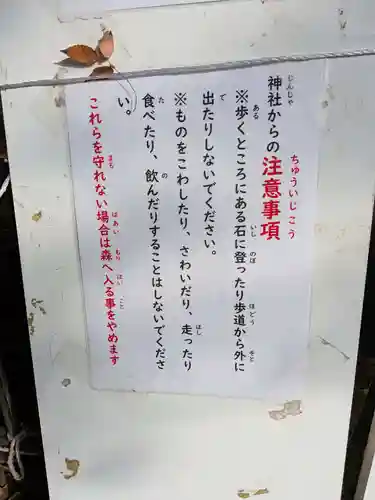 神社からの注意事項
※歩くところにある石に登ったり歩道から外に
出たりしないでください。
※ものをこわしたり、さわいだり、走ったり
食べたり、飲んだりすることはしないでくださ
い。
これらを守れない場合は森へ入る事をやめます